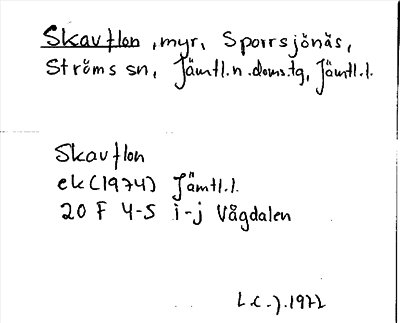 Skavflon, myr, Sporrsjönäs,
Ströms sn, Jämtl.n.doms.tg, Jämtl.l.
Skavflon
ek (1974) Jämtl.l.
20 F 4-5 i-j Vågdalen
1972